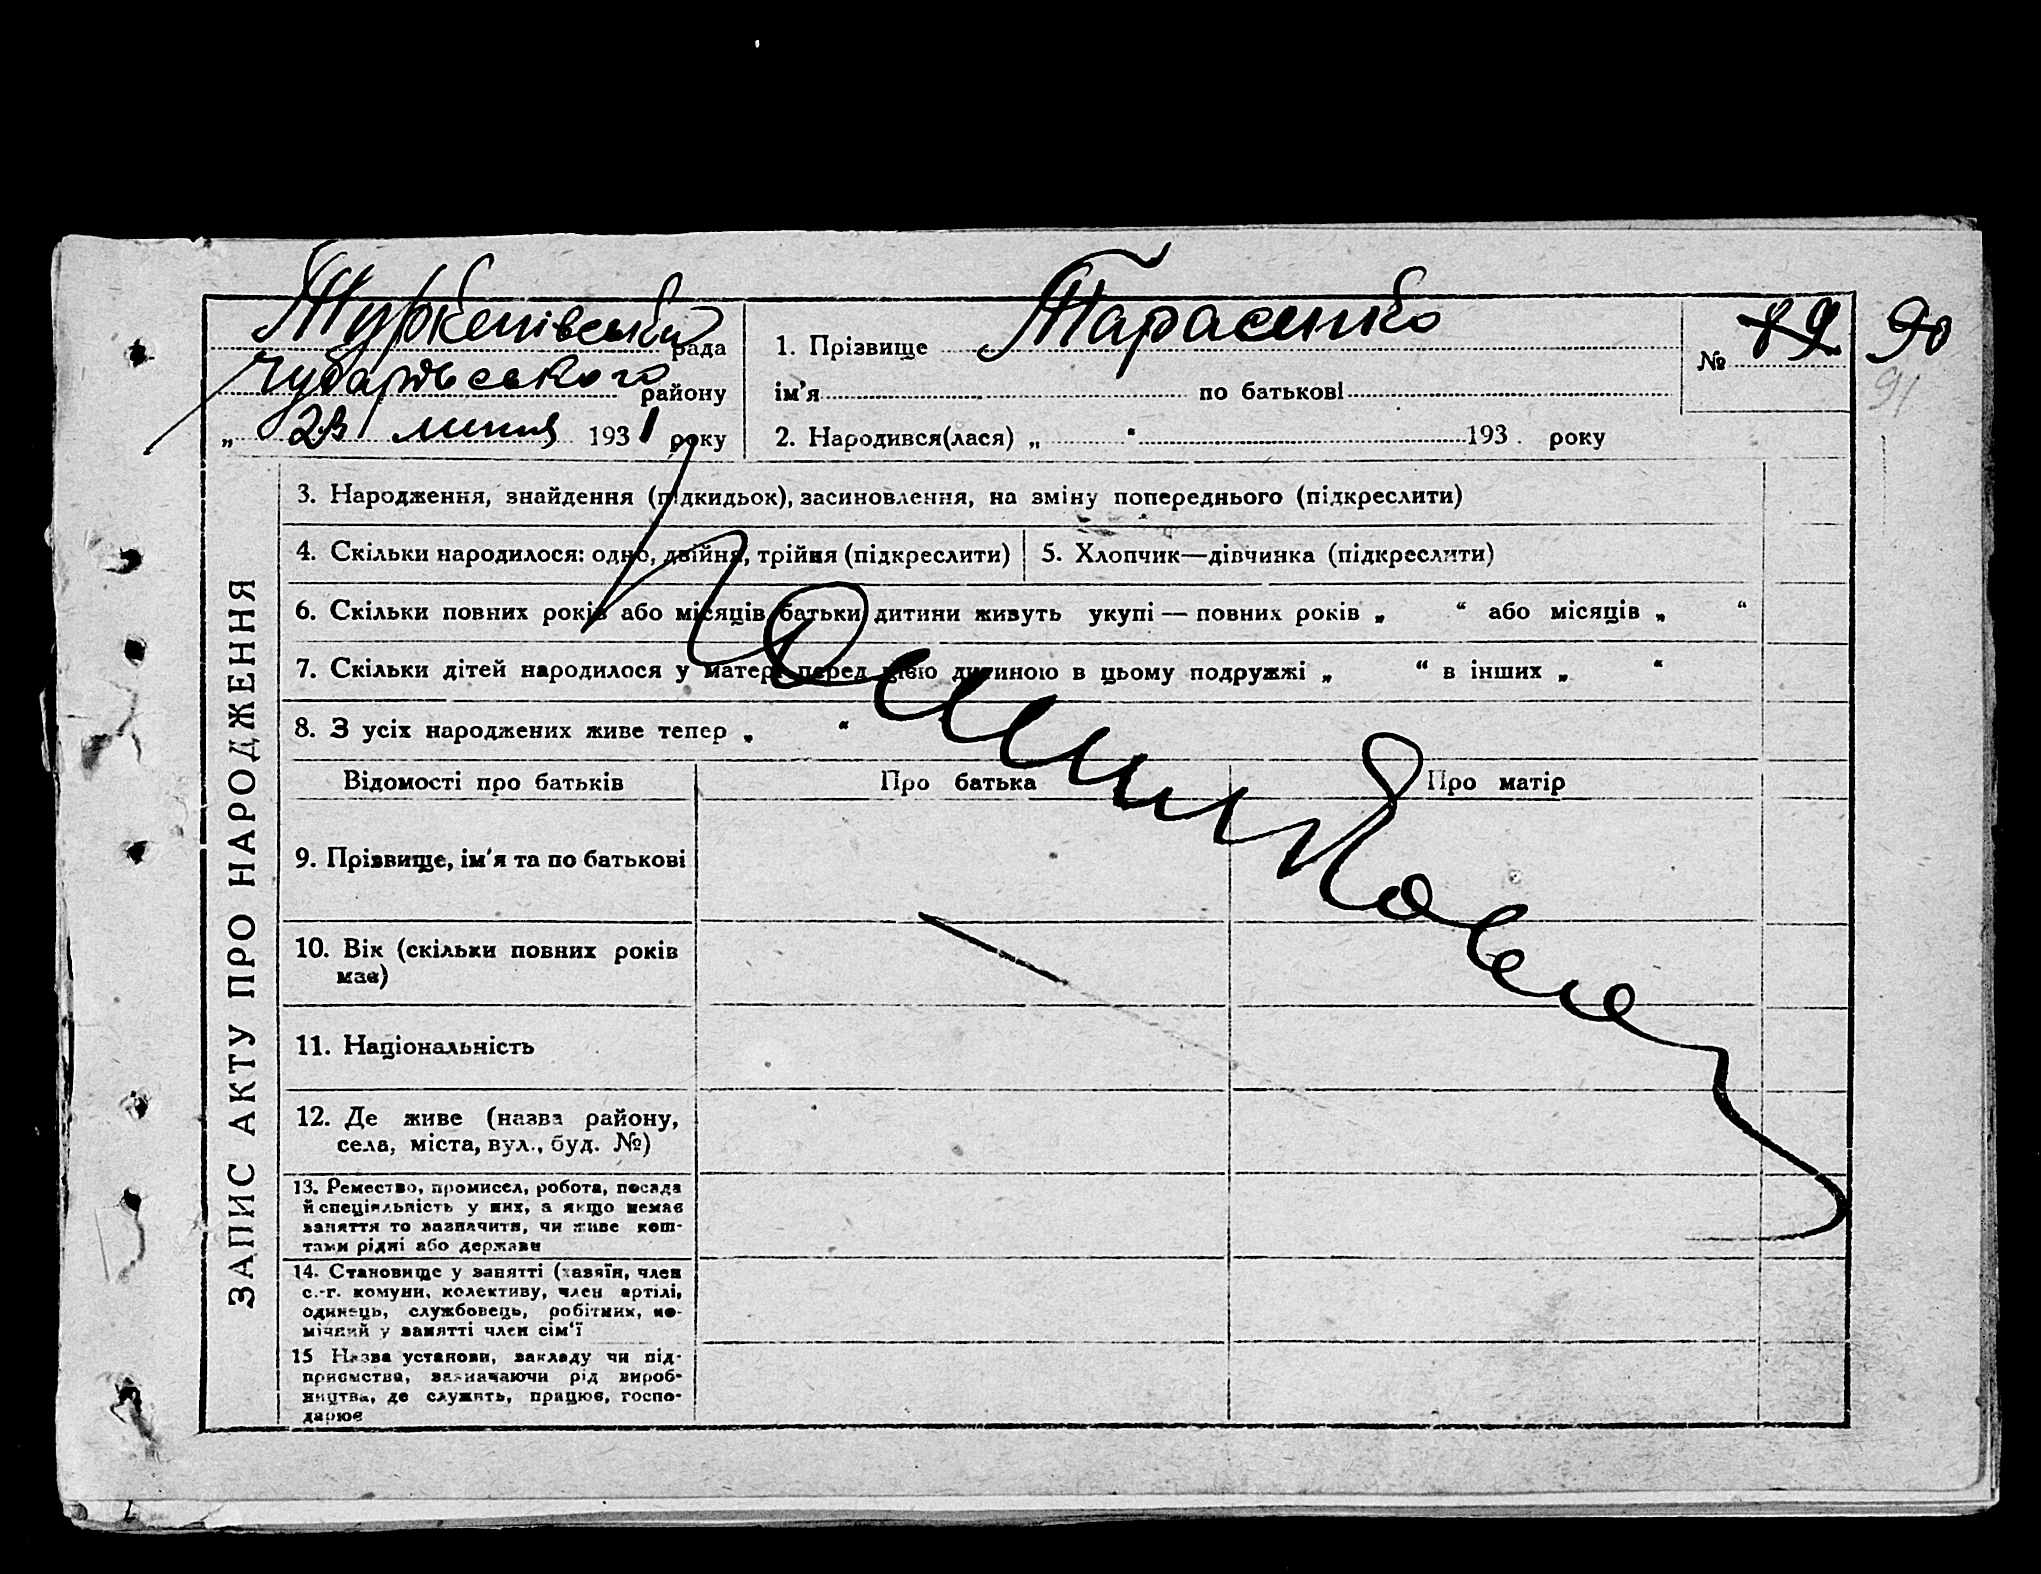 Туркенівська рада
Чубарівського району
„ 23 " липня 1931 року
1. Прізвище Тарасенко
ім’я по батькові
2. Народився(лася) „ “ 193 . року
№ 89 90
91
ЗАПИС АКТУ ПРО НАРОДЖЕННЯ
3. Народження, знайдення (підкидьок), засиновлення, на зміну попереднього (підкреслити)
4. Скільки народилося: одно, двійня, трійня (підкреслити)
5. Хлопчик—дівчинка (підкреслити)
6. Скільки повних років або місяців батьки дитини живуть укупі — повних років „ “ або місяців „ “
7. Скільки дітей народилося у матері перед цією дитиною в цьому подружжі „ “ в інших „ “
8. З усіх народжених живе тепер „ “
Помилковий
Відомості про батьків
Про батька
Про матір
9. Прізвище, ім’я та по батькові
10. Вік (скільки повних років
має)
11. Національність
12. Де живе (назва району,
села, міста, вул., буд. №)
13. Ремество, промисел, робота, посада
й спеціяльність у них, а якщо немає
заняття то зазначити, чи живе кош-
тами рідні або держави
14. Становище у занятті (хазяїн, член
с.-г. комуни, колективу, член артілі,
одинець, службовець, робітник, по-
мічний у занятті член сім’ї
15 Назва установи, закладу чи під-
приємства, зазначаючи рід вироб-
ництва, де служить, працює, госпо-
дарює